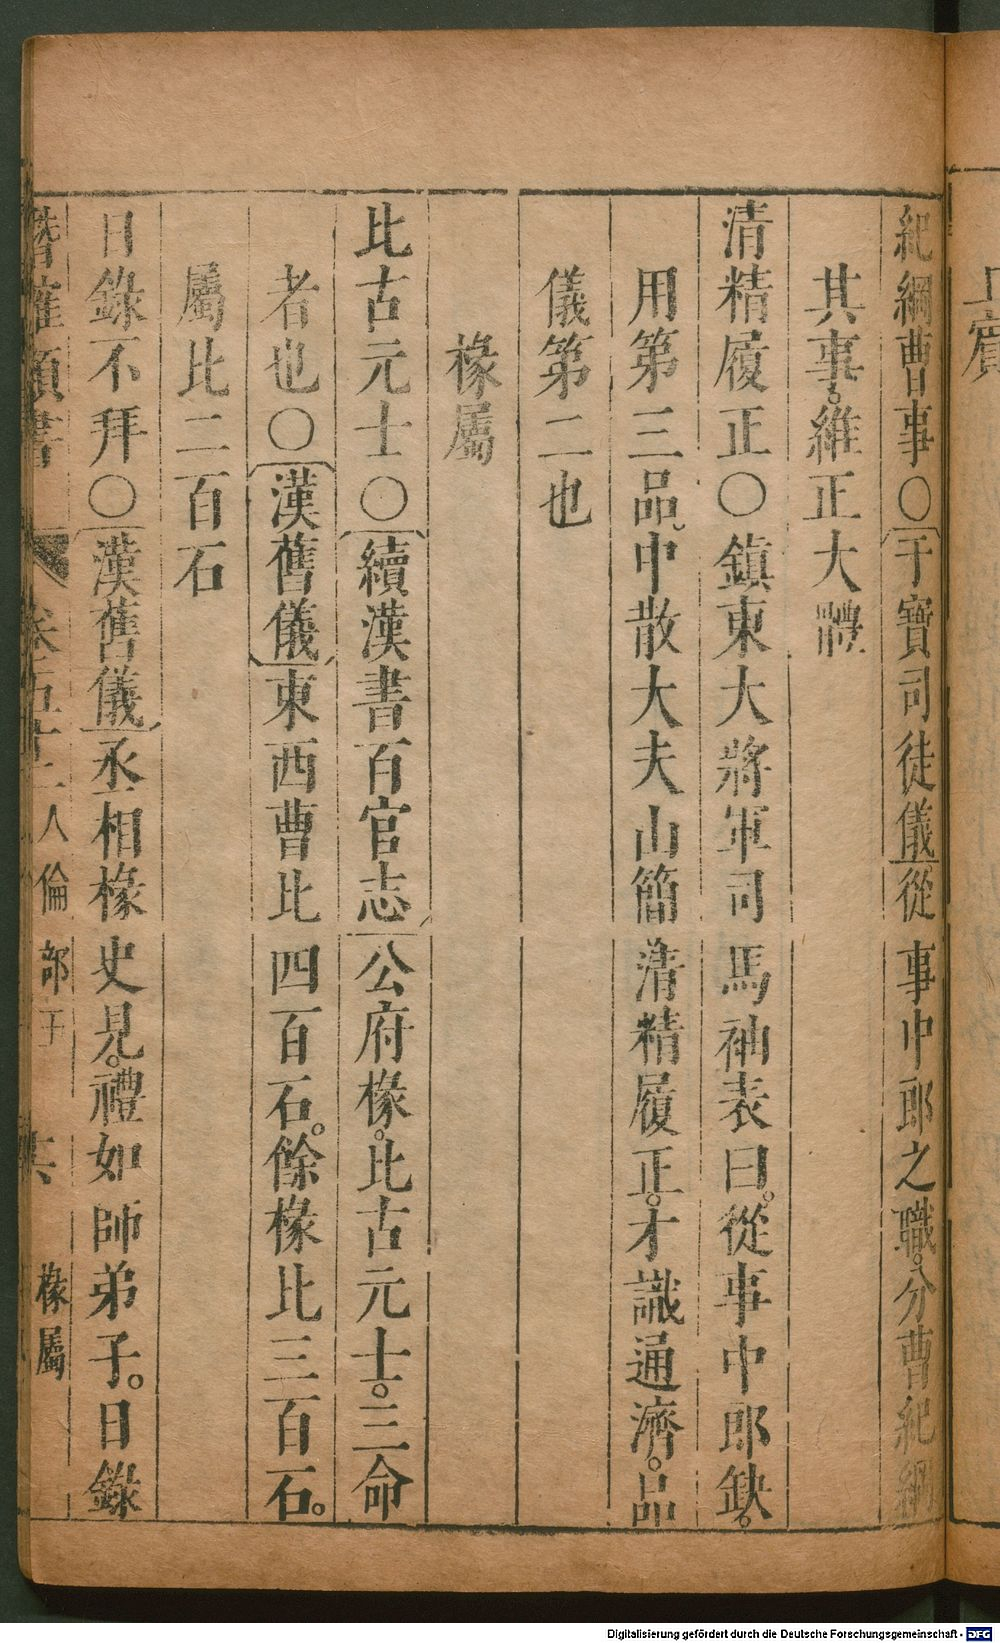 紀綱曹事〇干寶司徒儀從事中郎之職。分曹紀綱
其事。維正大體
清精履正〇鎮東大將軍司馬袖表曰。從事中郎缺。
用第三品。中散大夫山簡清精履正。才識通濟。品
儀第二也
椽屬
比古元士〇續漢書百官志公府椽。比古元士。三命
者也〇漢舊儀東西曹比四百石。餘椽比三百石。
屬比二百石
日錄不拜〇漢舊儀丞相椽史見。禮如師弟子。日錄
潛確類書 卷五十二人倫部 六 椽屬
Digitalisierung gefördert durch die Deutsche Forschungsgemeinschaft - DFG